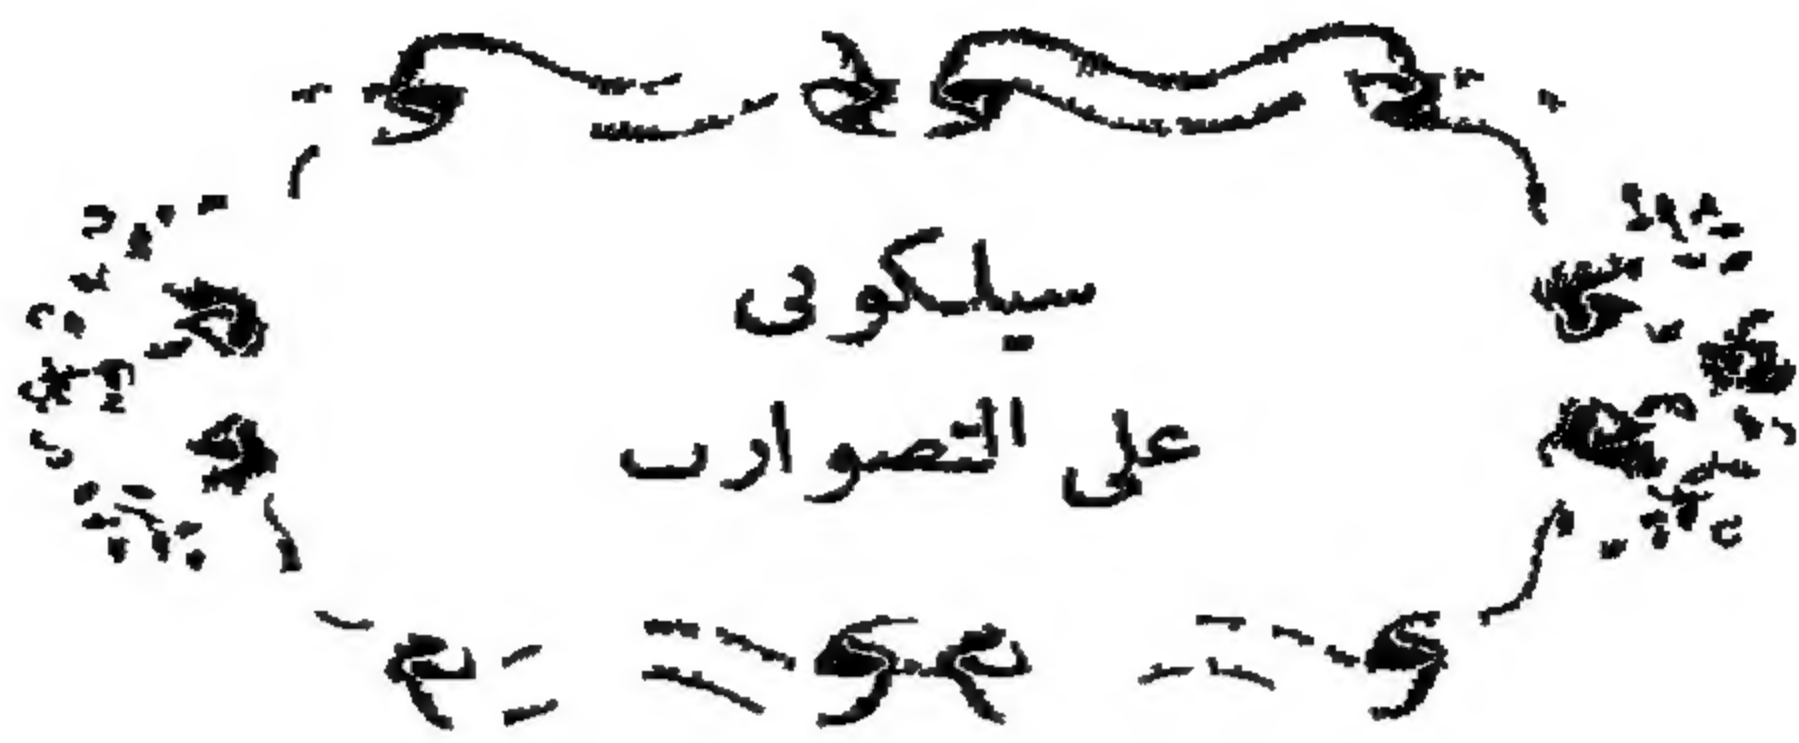 سيلكوتى
على التصورات